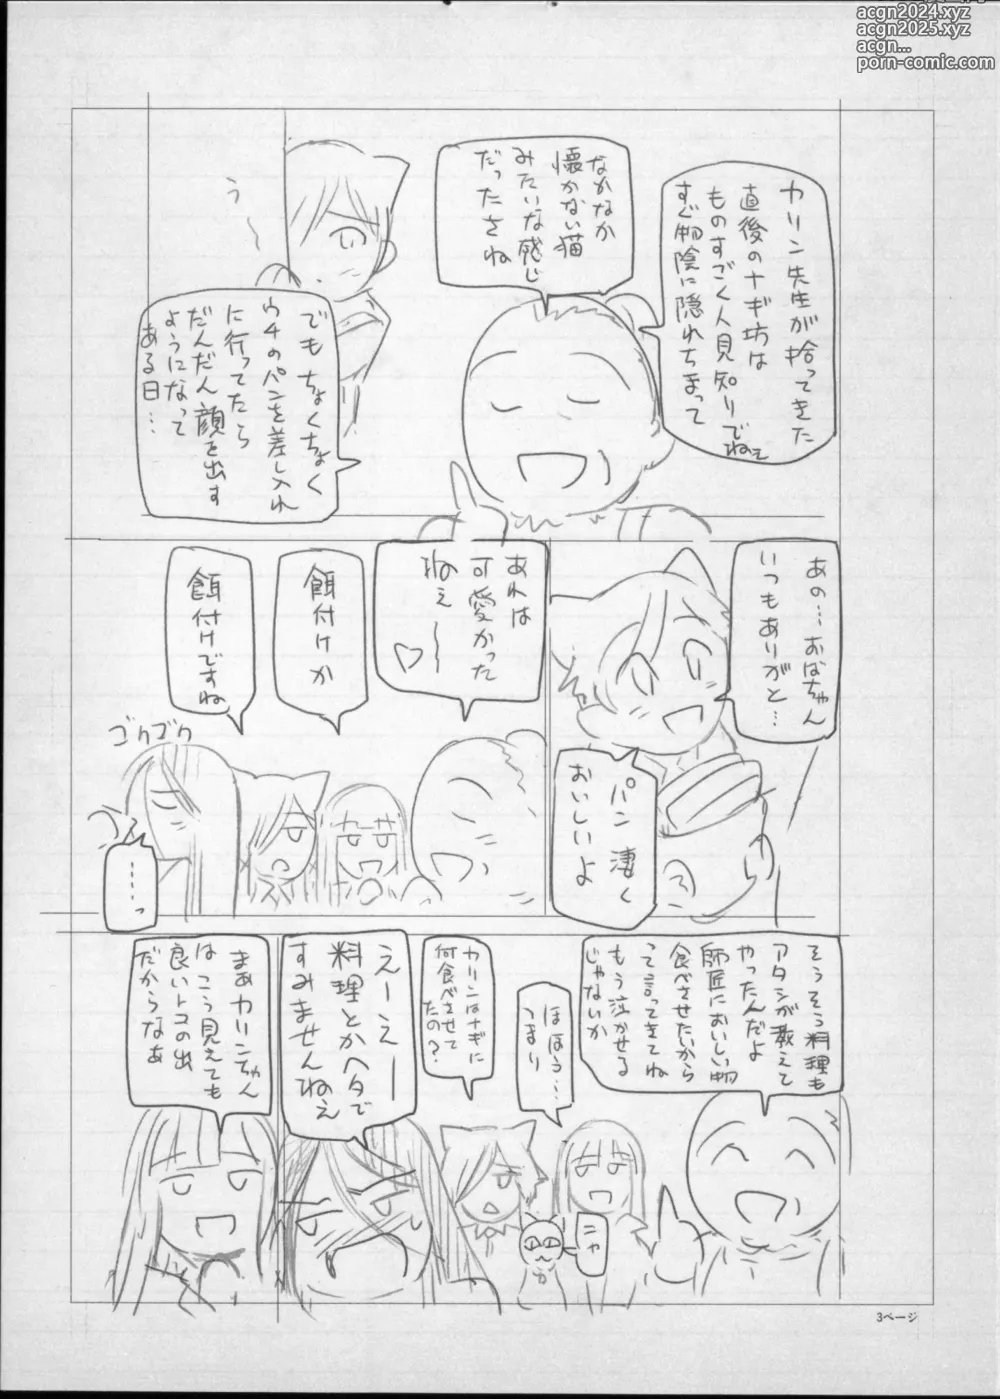 acgn2024.xyz
acgn2025.xyz
acgn...
porn-comic.com
カリン先生が拾ってきた
直後のナギ坊は
ものすごく人見知りでねェ
すぐ物陰に隠れちまって
なかなか
懐かない猫
みたいな感じ
だったさね
う
でもちょくちょく
ウチのパンを差し入れ
に行ってたら
だんだん顔を出す
ようになって
ある日…
あの…おばちゃん
いつもありがと…
パン凄く
おいしいよ
あれは
可愛かった
ねぇ〜
餌付けか
餌付けですね
ゴクゴク
……っ
そうそう料理も
アタシが教えて
やったんだよ
師匠においしい物
食べさせたいから
って言ってきてね
もう泣かせる
じゃないか
ほほう…
つまり
カリンはナギに
何食べさせて
たの?
ニャ
えーえー
料理とかヘタで
すみませんねえ
まあカリンちゃん
はこう見えても
良いトコの出
だからなぁ
3ページ